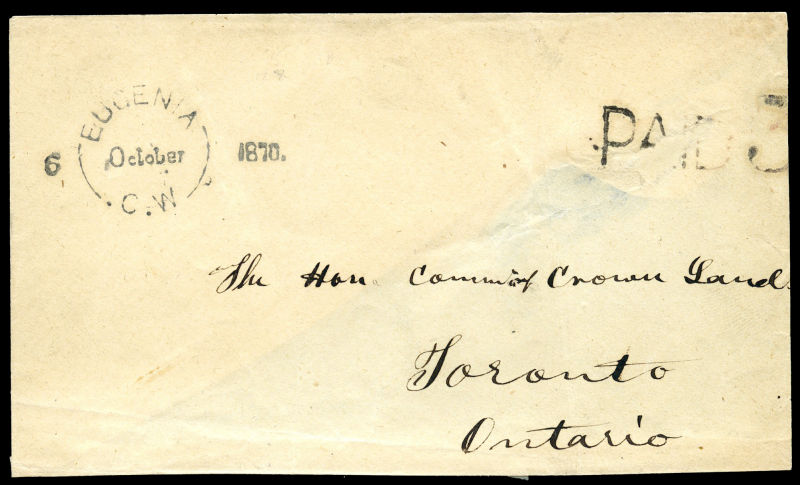 EUGENIA
6 October 1870.
C.W
PAID 5
The Hon. Commr of Crown Lands
Toronto
Ontario